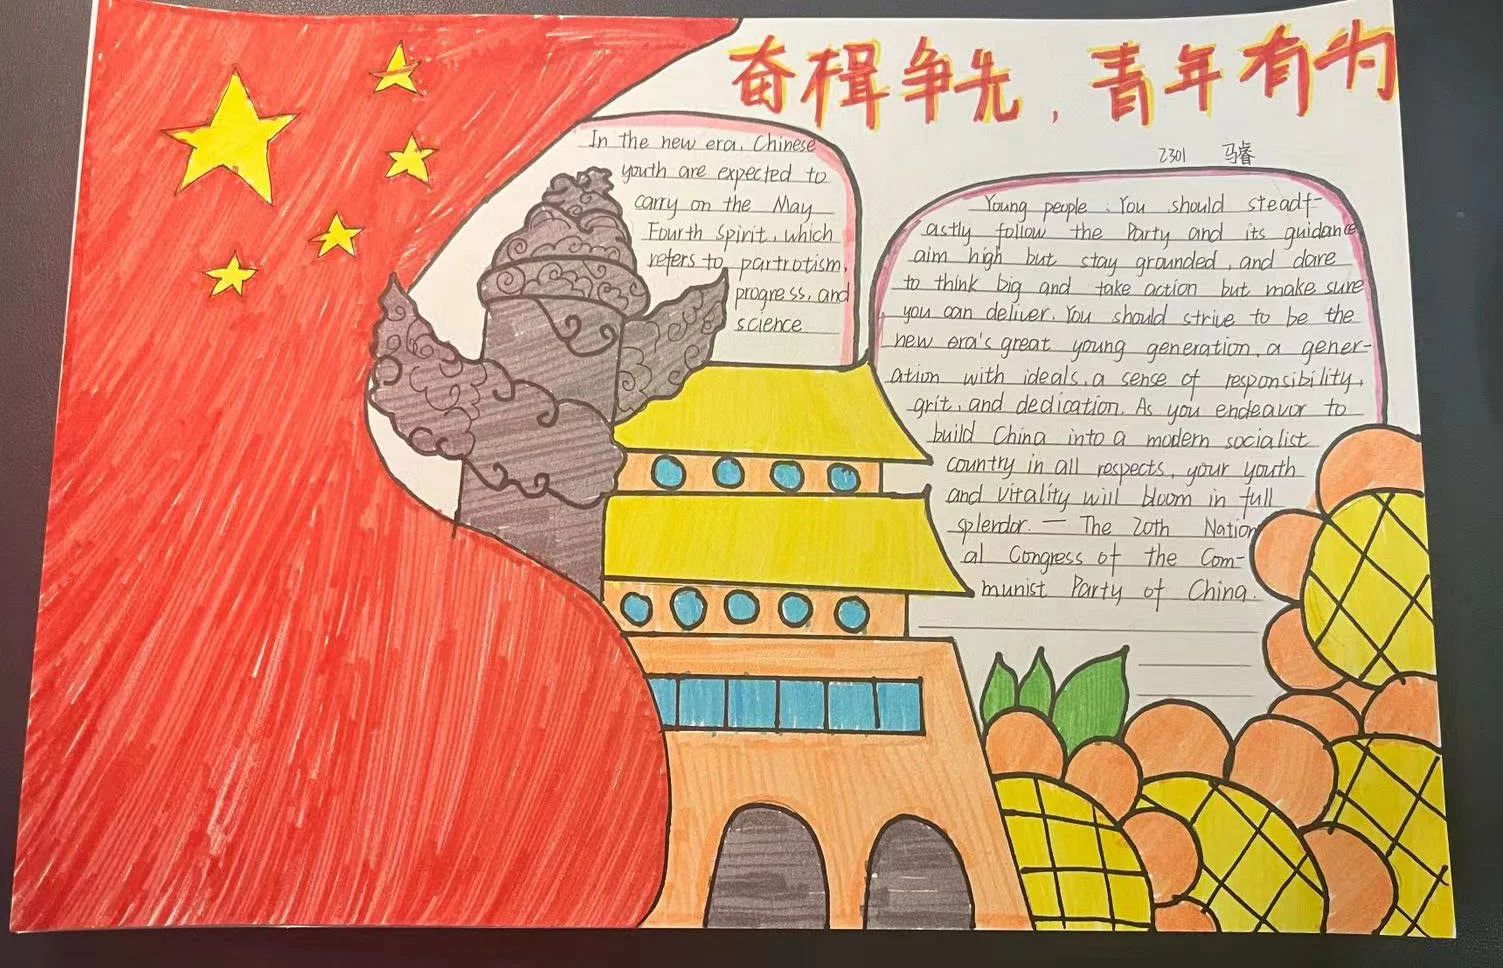 奋楫争先，青年有为
2301 马睿
In the new era, Chinese
youth are expected to
carry on the May
Fourth Spirit, which
refers to partrotism,
progress, and
science
Young people, You should steadf-
astly follow the Party and its guidance
aim high but stay grounded, and dare
to think big and take action but make sure
you can deliver. You should strive to be the
new era's great young generation, a gener-
ation with ideals, a sense of responsibility,
grit, and dedication. As you endeavor to
build China into a modern socialist
country in all respects, your youth
and vitality will bloom in full
splendor. — The 20th Nation
al Congress of the Com-
munist Party of China.